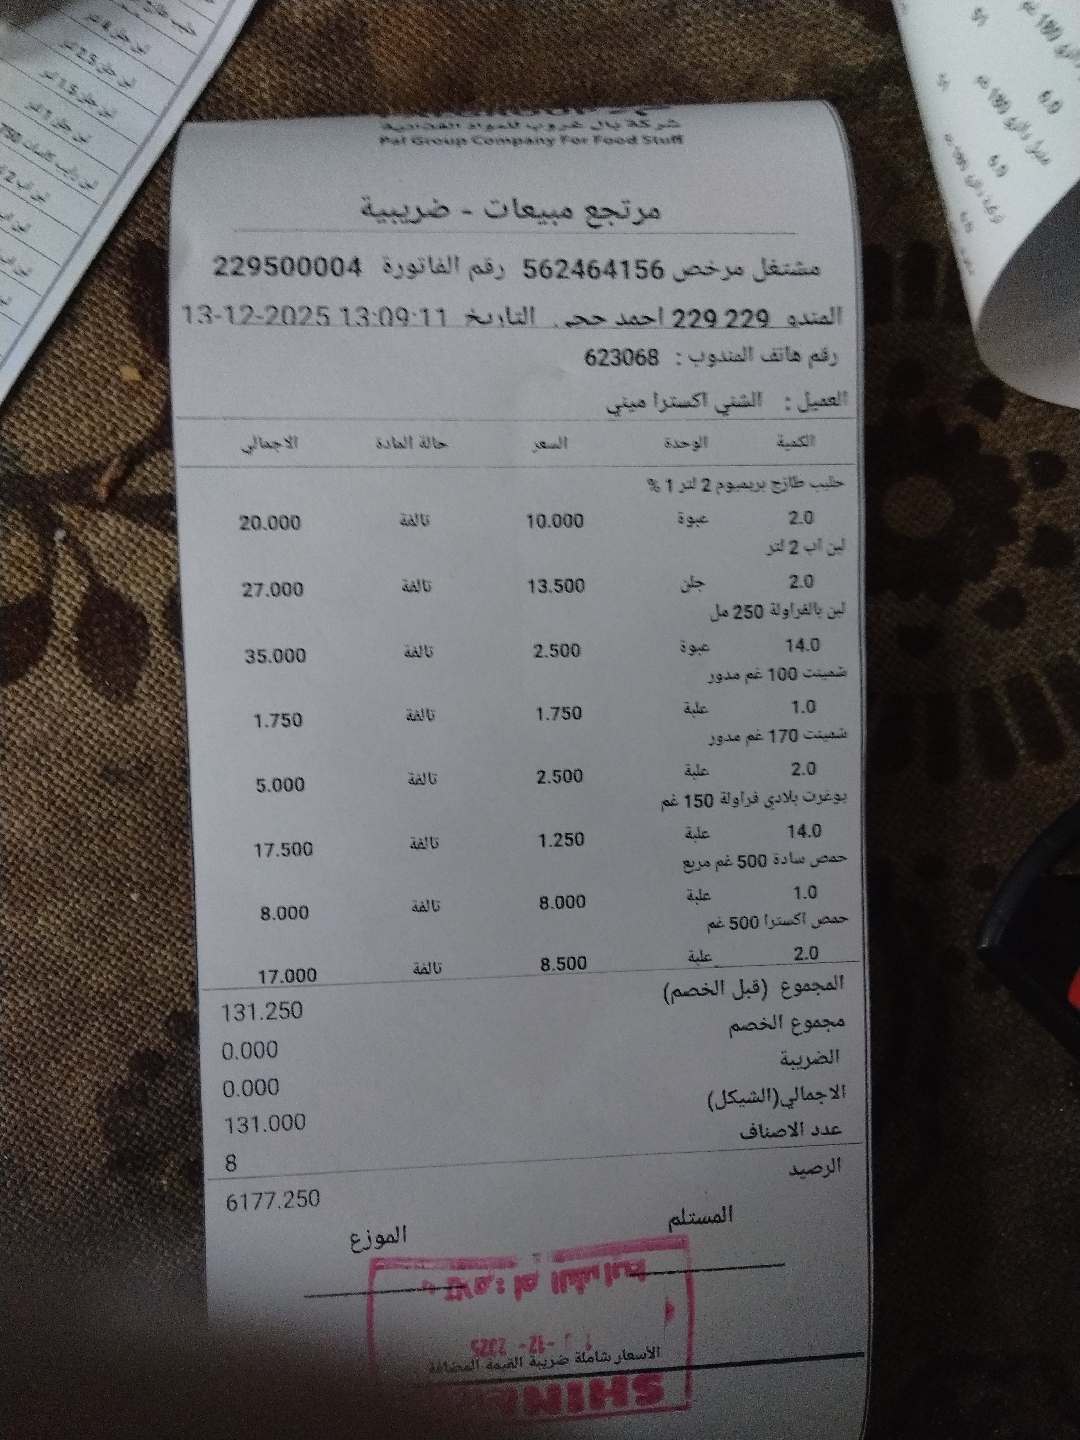 شركة بال غروب للمواد الغذائية
Pal Group Company For Food Stuff
مرتجع مبيعات - ضريبية
مشتغل مرخص 562464156 رقم الفاتورة 229500004
المندو 229 229 احمد حجي التاريخ 13-12-2025 13:09:11
رقم هاتف المندوب : 623068
العميل : الشني اكسترا ميني
الكمية الوحدة السعر حالة المادة الاجمالي
حليب طازج بريميوم 2 لتر 1 %
2.0 عبوة 10.000 تالفة 20.000
لبن اب 2 لتر
2.0 جلن 13.500 تالفة 27.000
لبن بالفراولة 250 مل
14.0 عبوة 2.500 تالفة 35.000
شمينت 100 غم مدور
1.0 علبة 1.750 تالفة 1.750
شمينت 170 غم مدور
2.0 علبة 2.500 تالفة 5.000
يوغرت بلادي فراولة 150 غم
14.0 علبة 1.250 تالفة 17.500
حمص سادة 500 غم مربع
1.0 علبة 8.000 تالفة 8.000
حمص اكسترا 500 غم
2.0 علبة 8.500 تالفة 17.000
المجموع (قبل الخصم) 131.250
مجموع الخصم 0.000
الضريبة 0.000
الاجمالي(الشيكل) 131.000
عدد الاصناف 8
الرصيد 6177.250
المستلم الموزع
الأسعار شاملة ضريبة القيمة المضافة